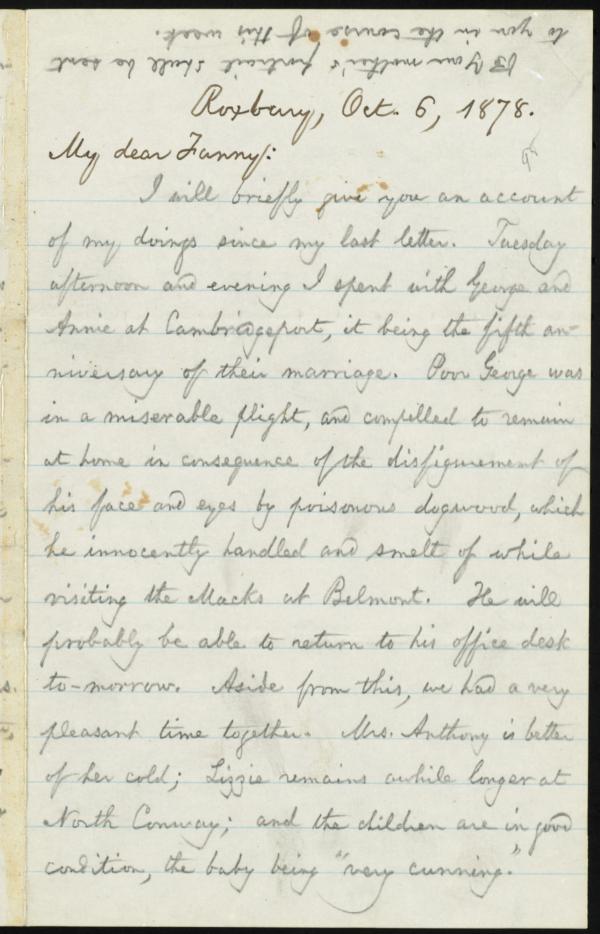 ☞ Your mother's portrait shall be sent
to you in the course of this week.
Roxbury, Oct. 6, 1878.
My dear Fanny:
I will briefly give you an account
of my doings since my last letter. Tuesday
afternoon and evening I spent with George and
Annie at Cambridgeport, it being the fifth an-
niversary of their marriage. Poor George was
in a miserable plight, and compelled to remain
at home in consequence of the disfigurement of
his face and eyes by poisonous dogwood, which
he innocently handled and smelt of while
visiting the Macks at Belmont. He will
probably be able to return to his office desk
to-morrow. Aside from this, we had a very
pleasant time together. Mrs. Anthony is better
of her cold; Lizzie remains awhile longer at
North Conway; and the children are in good
condition, the baby being "very cunning."